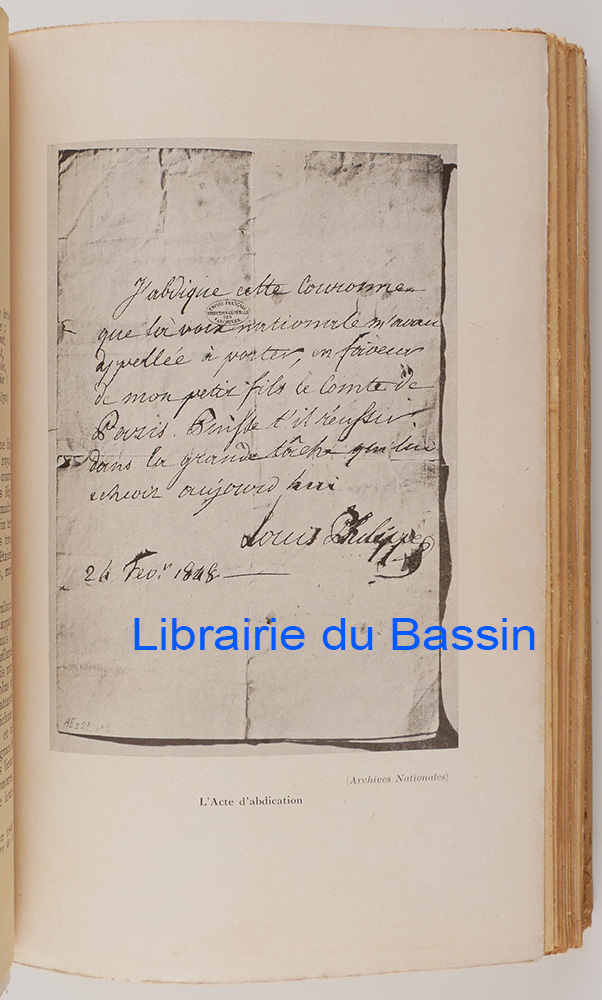 J'abdique cette Couronne
que la voix nationale m'avait
appellée à porter, en faveur
de mon petit fils le Comte de
Paris. Puisse t'il réussir
dans la grande tâche qui lui
echoit aujourd'hui
Louis Philippe
24 Fevr. 1848.
EMPIRE FRANÇAIS
DIRECTION GÉNÉRALE
DES
ARCHIVES
Librairie du Bassin
(Archives Nationales)
L'Acte d'abdication